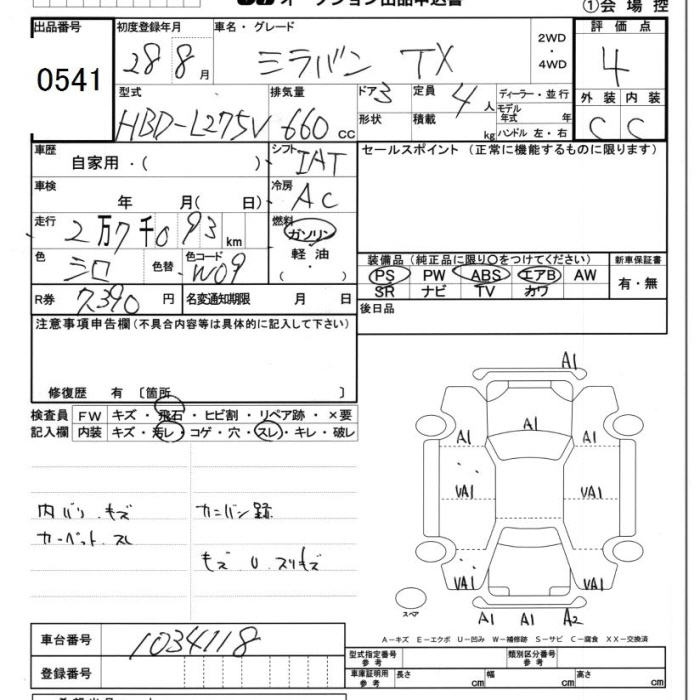 ①会場控
出品番号
0541
初度登録年月
28 8 月
車名・グレード
ミラバン TX
2WD
・
4WD
評価点
4
外装 内装
C C
型式
HBD-L275V
排気量
660 cc
ドア 3
形状
定員 4 人
積載 kg
ディーラー・並行
モデル
年式 年
ハンドル 左・右
車歴
自家用・( )
シフト IAT
車検
年 月( 日)
冷房 AC
走行
2万7千093 km
燃料
ガソリン
軽油
( ・ )
色
シロ
色替
色コード
W09
R券 7390 円
名変通知期限 月 日
セールスポイント (正常に機能するものに限ります)
装備品(純正品に限り○をつけてください)
PS PW ABS エアB AW
SR ナビ TV カワ
新車保証書
有・無
後日品
注意事項申告欄(不具合内容等は具体的に記入して下さい)
修復歴 有 〔箇所 〕
検査員 FW キズ・飛石・ヒビ割・リペア跡・×要
記入欄 内装 キズ・汚レ・コゲ・穴・スレ・キレ・破レ
内バリ キズ
カーペット スレ
カンバン跡
キズ U スリキズ
A1
A1
A1 A1
VA1 VA1
VA1 VA1
A1 A1 A2
スペア
A-キズ E-エクボ U-凹み W-補修跡 S-サビ C-腐食 XX-交換済
車台番号 1034118
登録番号
型式指定番号
参考
類別区分番号
参考
車庫証明用
参考
長さ cm 幅 cm 高さ cm